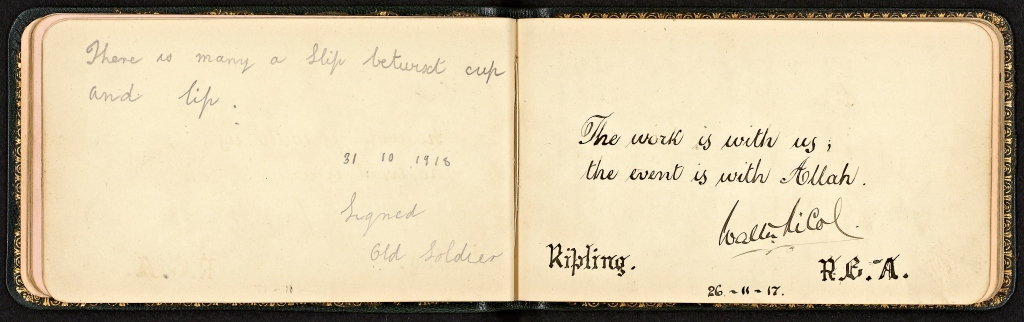 There is many a Slip betwixt cup
and lip.
31 10 1918
Signed
Old Soldier
The work is with us;
the event is with Allah.
Walter Nicol.
Kipling.
R.G.A.
26-11-17.